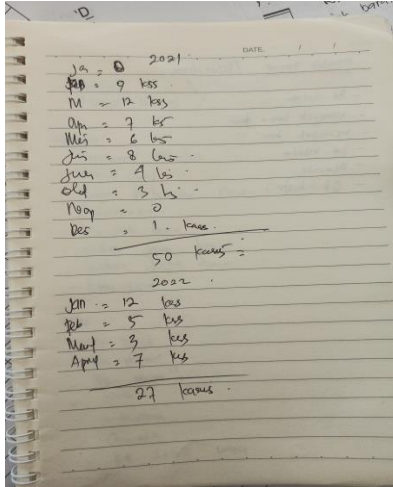 DATE / /
2021
Ja = 0
Feb = 9 kss
M = 12 kss
Apr = 7 ks
Mei = 6 ks
Jun = 8 kss
= 4 ks
= 3 ks
Nop = 0
Des = 1 kasus
50 kasus =
2022
Jan = 12 kss
Feb = 5 kss
Maret = 3 kss
April = 7 kss
27 kasus